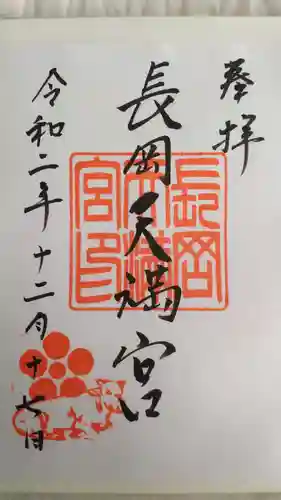 奉拝
長岡天満宮
長岡天満宮印
令和二年十二月十七日